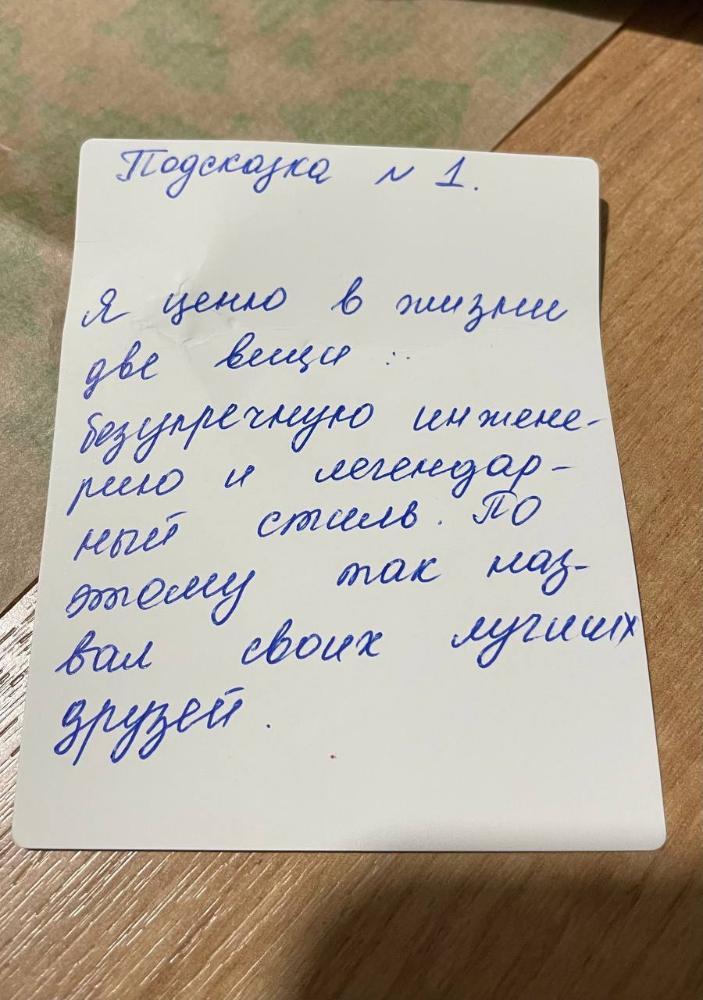 Подсказка N 1.
Я ценю в жизни
две вещи:
безупречную инжене-
рию и легендар-
ный стиль. ПО
этому так наз-
вал своих лучших
друзей.